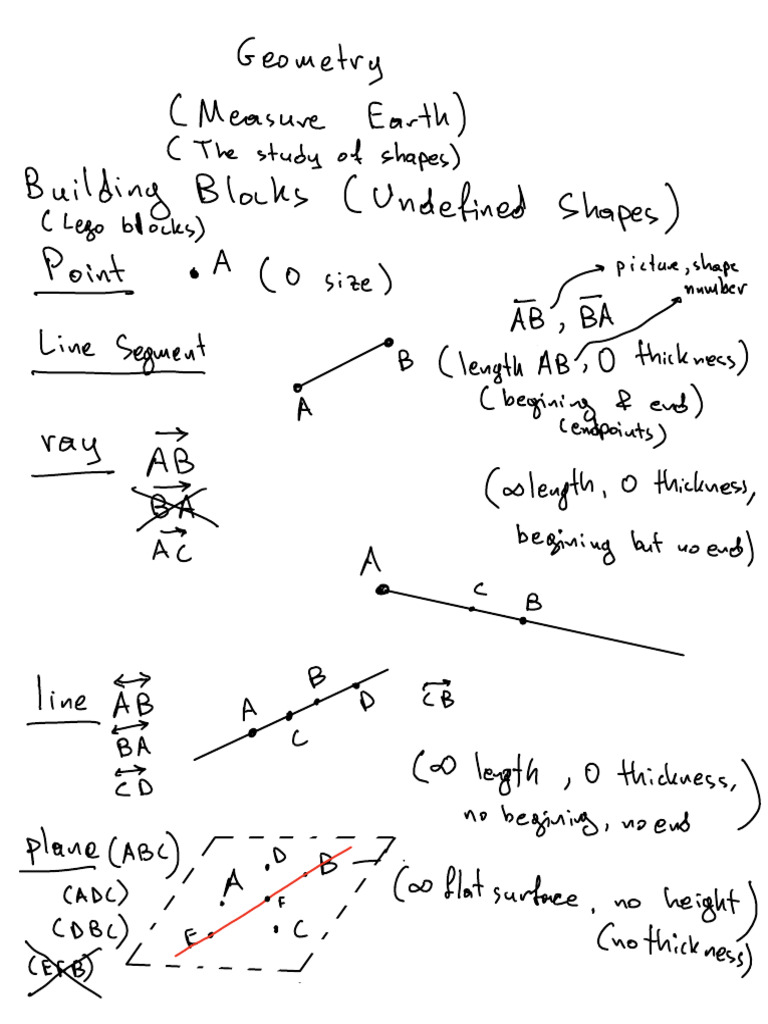 Geometry
(Measure Earth)
(The study of shapes)
Building Blocks (Undefined Shapes)
(Lego blocks)
Point . A (0 size)
picture, shape
number
AB, BA
Line Segment
A
B
(length AB, 0 thickness)
(begining & end)
(endpoints)
ray
AB
BA
AC
(∞ length, 0 thickness,
begining but no end)
A
C
B
line
AB
BA
CD
A
C
B
D
CB
(∞ length, 0 thickness,
no begining, no end)
plane (ABC)
(ADC)
(DBC)
(EFB)
A
D
B
F
E
C
(∞ flat surface, no height)
(no thickness)